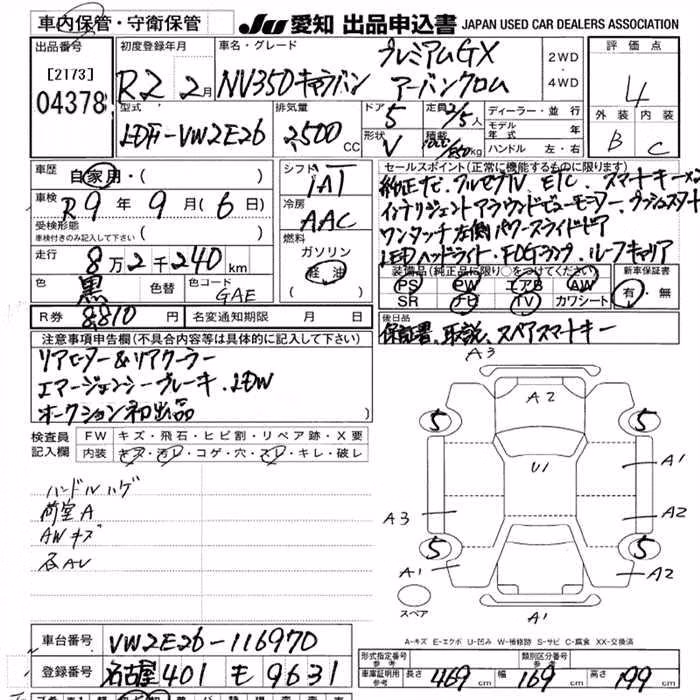 車内保管・守衛保管
JU 愛知 出品申込書 JAPAN USED CAR DEALERS ASSOCIATION
出品番号
[2173]
04378
初度登録年月
R2 2月
車名・グレード
プレミアムGX
NV350キャラバン アーバンクロム
2WD
・
4WD
評価点
4
外装 内装
B C
型式
LDF-VW2E26
排気量
2,500 CC
ドア 5
定員 2/5人
形状 V
積載 kg
ディーラー・並行
モデル年式 年
ハンドル 左・右
車歴
自家用・( )
車検
R9年9月(6日)
受検形態
車検付きのみ記入して下さい ( )
走行
8万2千240km
色 黒 色替 色コード GAE
シフト
IAT
冷房
AAC
燃料
ガソリン
軽油
セールスポイント(正常に機能するものに限ります)
純正ナビ、フルセグTV、ETC、スマートキー
インテリジェントアラウンドビューモニター、プッシュスタート
ワンタッチ左側パワースライドドア
LEDヘッドライト・FOGランプ、ルーフキャリア
装備品(純正品に限り○をつけてください)
PS PW エアB AW
SR ナビ TV カワシート
新車保証書
有・無
R券 8,810円 名変通知期限 月 日
後日品
保証書、取説、スペアスマートキー
注意事項申告欄(不具合内容等は具体的に記入して下さい)
リアヒーター&リアクーラー
エマージェンシーブレーキ、LDW
オークション初出品 )
検査員記入欄
FW キズ・飛石・ヒビ割・リペア跡・X要
内装 キズ・汚レ・コゲ・穴・スレ・キレ・破レ
ハンドルハゲ
荷室A
AWキズ
各AU
A3
A2
5 5
U1
A1
A3 A2
5 5
A1 A2
スペア
A1
A-キズ E-エクボ U-凹み W-補修跡 S-サビ C-腐食 XX-交換済
車台番号 VW2E26-116970
登録番号 名古屋 401 モ 9631
形式指定番号 参考
類別区分番号 参考
車庫証明用 参考 長さ 469cm 幅 169cm 高さ 199cm